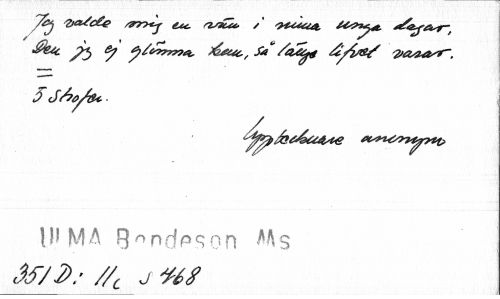 Jag valde mig en vän i mina unga dagar,
Den jag ej glömma kan, så länge lifvet varar.
=
5 Strofer.
Upptecknare anonym
ULMA Bondeson Ms
351 D: 11c s 468